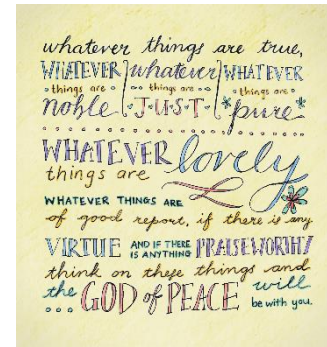 whatever things are true,
WHATEVER whatever WHATEVER
things are things are things are
noble J·U·S·T· pure
WHATEVER lovely
things are
WHATEVER THINGS ARE
of good report, if there is any
VIRTUE AND IF THERE IS ANYTHING PRAISEWORTHY
think on these things and
the GOD of PEACE will
be with you.